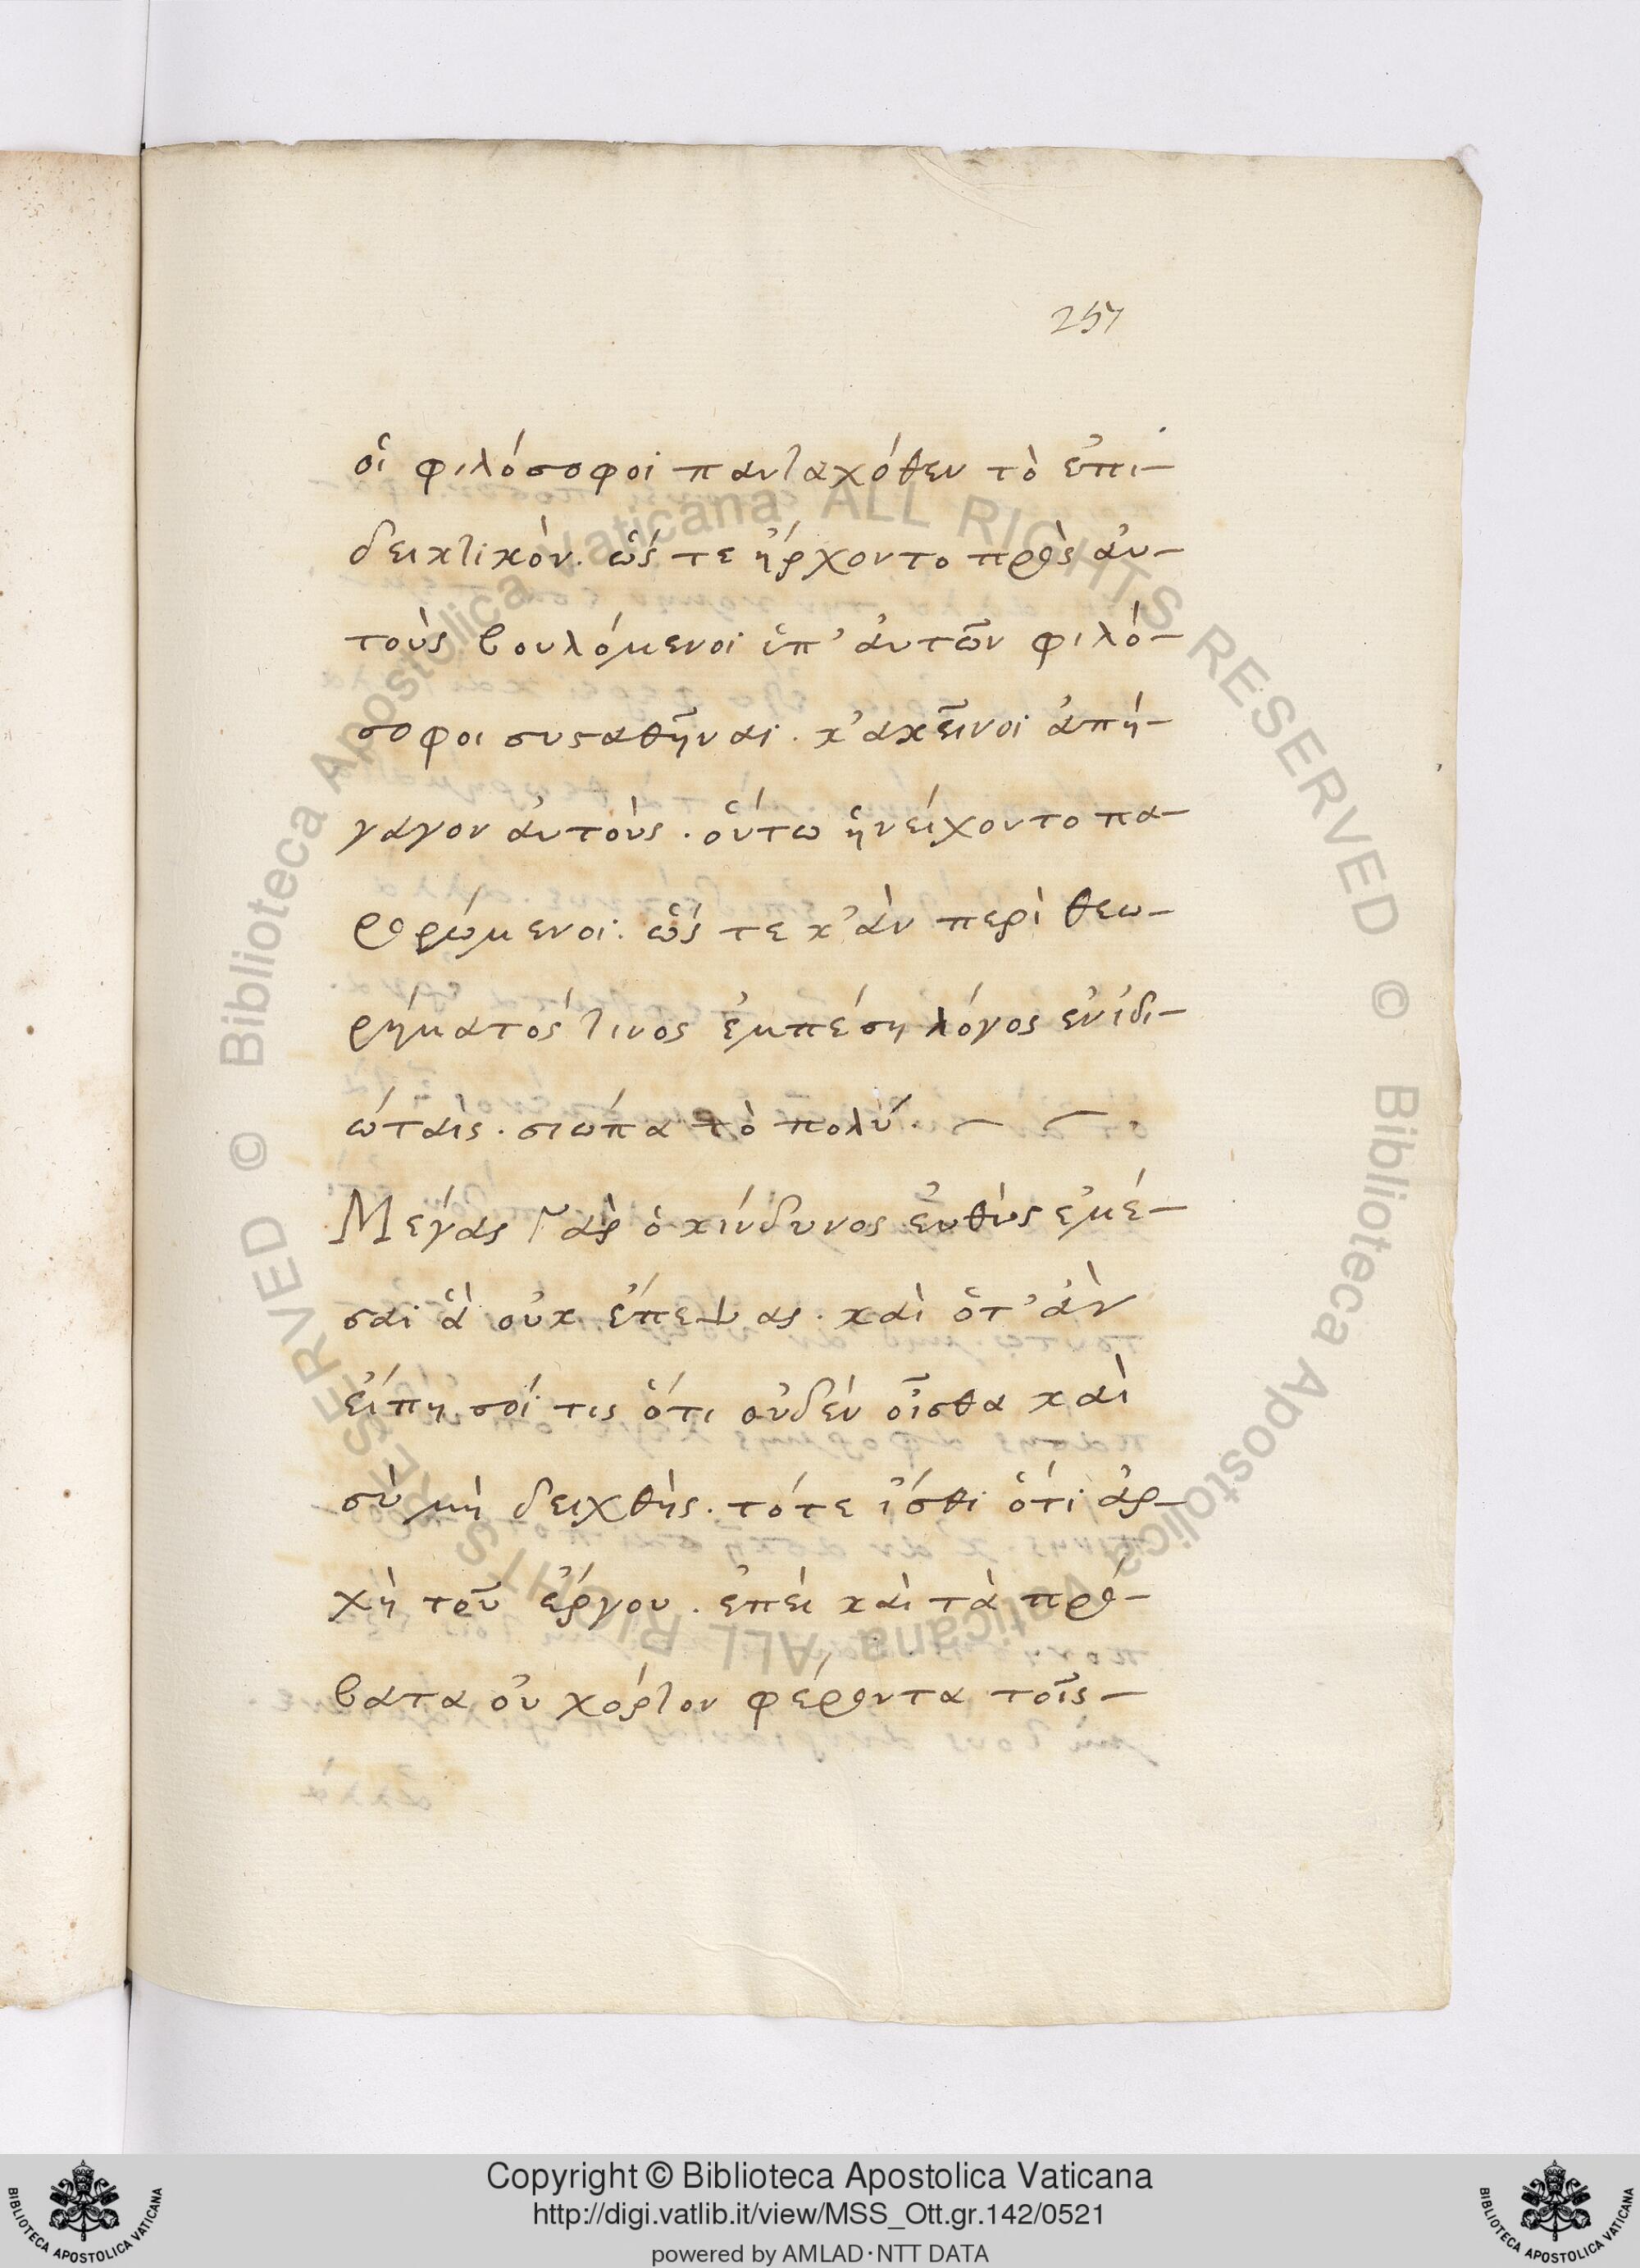 257
οἱ φιλόσοφοι πανταχόθεν τὸ ἐπι-
δεικτικόν. ὥς τε ἤρχοντο πρὸς ἀυ-
τοὺς βουλόμενοι ὑπ’ ἀυτῶν φιλό-
σοφοι συςαθῆναι. κ’ ἀκεῖνοι ἀπή-
γαγον ἀυτοὺς. ὅυτω ἠνείχοντο πα-
ρορώμενοι. ὥς τε κ’ ἀν περὶ θεω-
ρήματός τινος ἐμπέση λόγος ἐν ἰδι-
ώταις. σιώπα τὸ πολύ.
Μέγας γὰρ ὁ κίνδυνος ἐυθὺς ἐμέ-
σαι ἃ οὐκ ἔπεψας. καὶ ὅτ’ ἀν
ἔιπη σοί τις ὅτι οὐδὲν οἶσθα καὶ
σὺ μὴ δειχθῆς. τότε ἴσθι ὅτι ἀρ-
χὴ τοῦ ἔργου. ἐπεὶ καὶ τὰ πρό-
βατα οὐ χόρτον φέροντα τοῖς
Copyright © Biblioteca Apostolica Vaticana
http://digi.vatlib.it/view/MSS_Ott.gr.142/0521
powered by AMLAD·NTT DATA
BIBLIOTECA APOSTOLICA VATICANA
BIBLIOTECA APOSTOLICA VATICANA
© Biblioteca Apostolica Vaticana ALL RIGHTS RESERVED © Biblioteca Apostolica Vaticana ALL RIGHTS RESERVED